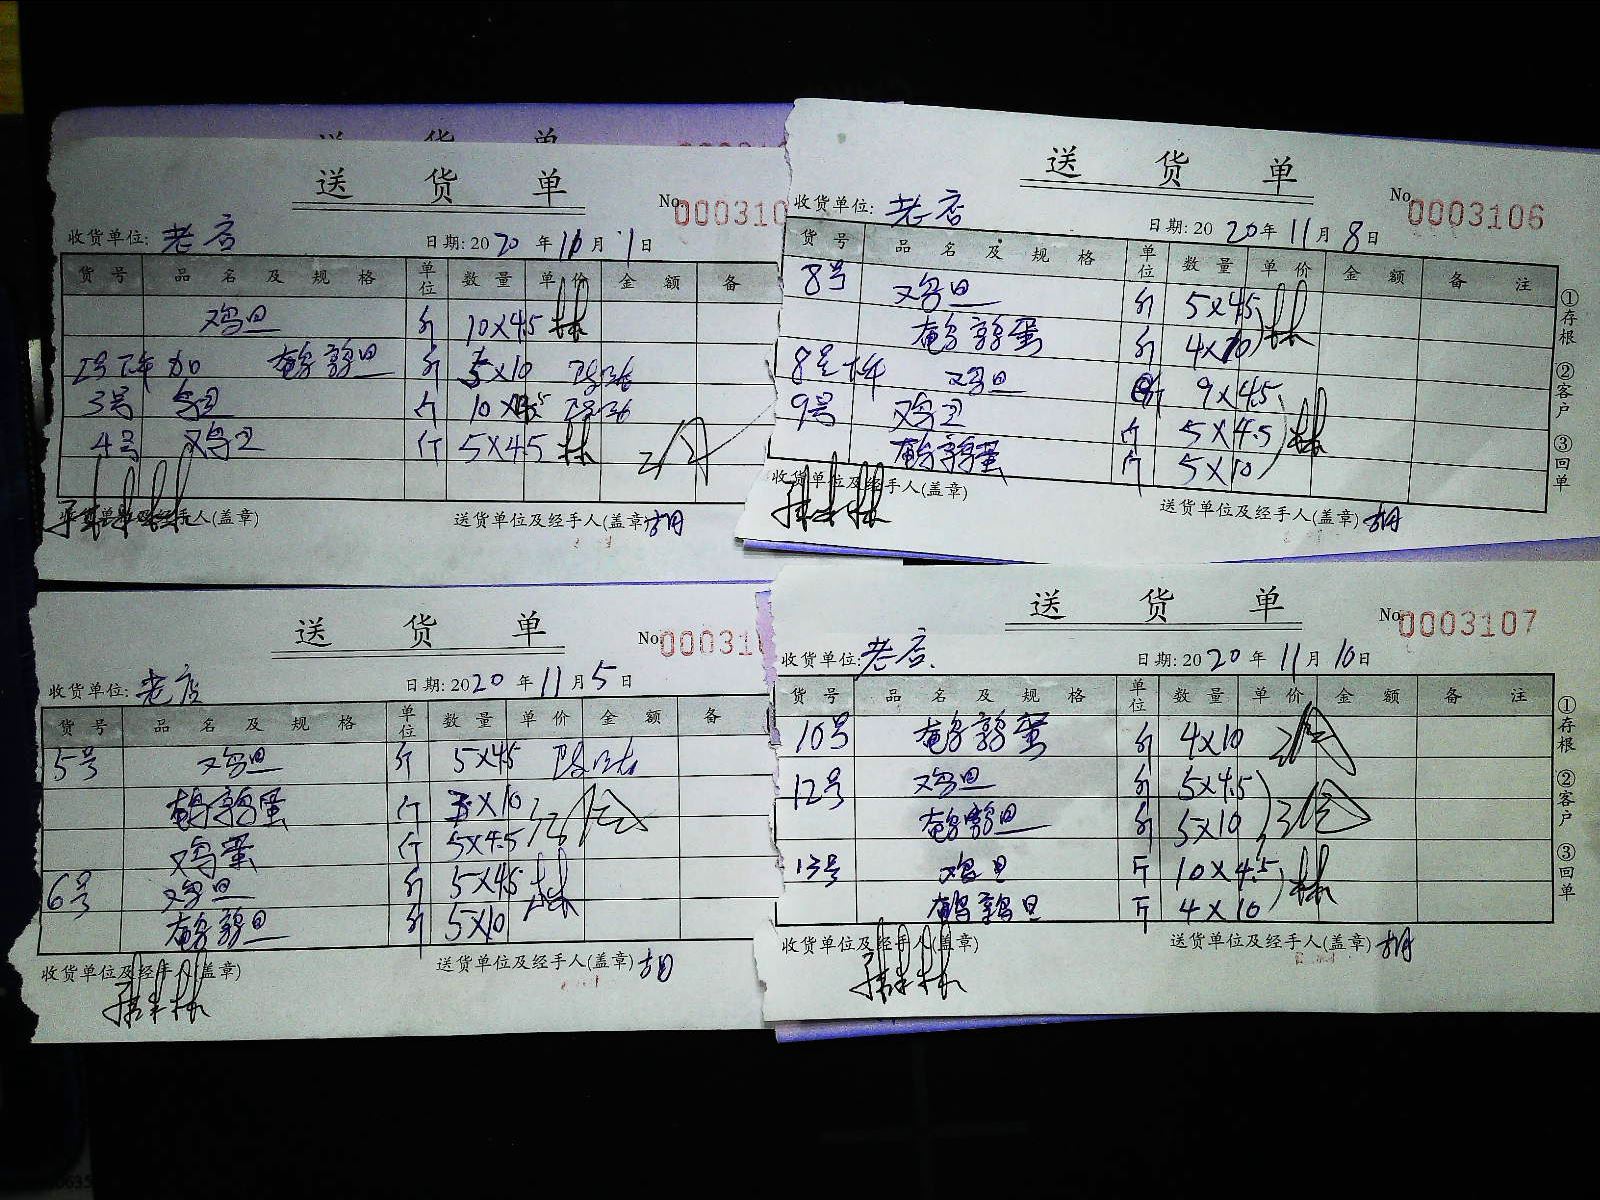 送 货 单
No. 000310
收货单位: 老店
日期: 2020年11月1日
货号 品名及规格 单位 数量 单价 金额 备
鸡旦 斤 10×4.5 林
2号下午加 鹌鹑旦 斤 5×10
3号 鸡旦 斤 10×4.5
4号 鸡旦 斤 5×4.5 林
收货单位及经手人(盖章)
送货单位及经手人(盖章) 胡
送 货 单
No. 0003106
收货单位: 老店
日期: 2020年11月8日
货号 品名及规格 单位 数量 单价 金额 备注
8号 鸡旦 斤 5×45
鹌鹑蛋 斤 4×10 林
8号下午 鸡旦 斤 9×4.5
9号 鸡旦 斤 5×4.5 林
鹌鹑蛋 斤 5×10
收货单位及经手人(盖章)
送货单位及经手人(盖章) 胡
①存根 ②客户 ③回单
送 货 单
No. 00031
收货单位: 老店
日期: 2020年11月5日
货号 品名及规格 单位 数量 单价 金额 备
5号 鸡旦 斤 5×45
鹌鹑蛋 斤 5×10
鸡蛋 斤 5×4.5
6号 鸡旦 斤 5×45 林
鹌鹑旦 斤 5×10
收货单位及经手人(盖章)
送货单位及经手人(盖章) 胡
送 货 单
No. 0003107
收货单位: 老店.
日期: 2020年11月10日
货号 品名及规格 单位 数量 单价 金额 备注
10号 鹌鹑蛋 斤 4×10
12号 鸡旦 斤 5×4.5
鹌鹑旦 斤 5×10
13号 鸡旦 斤 10×4.5 林
鹌鹑旦 斤 4×10
收货单位及经手人(盖章)
送货单位及经手人(盖章) 胡
①存根 ②客户 ③回单